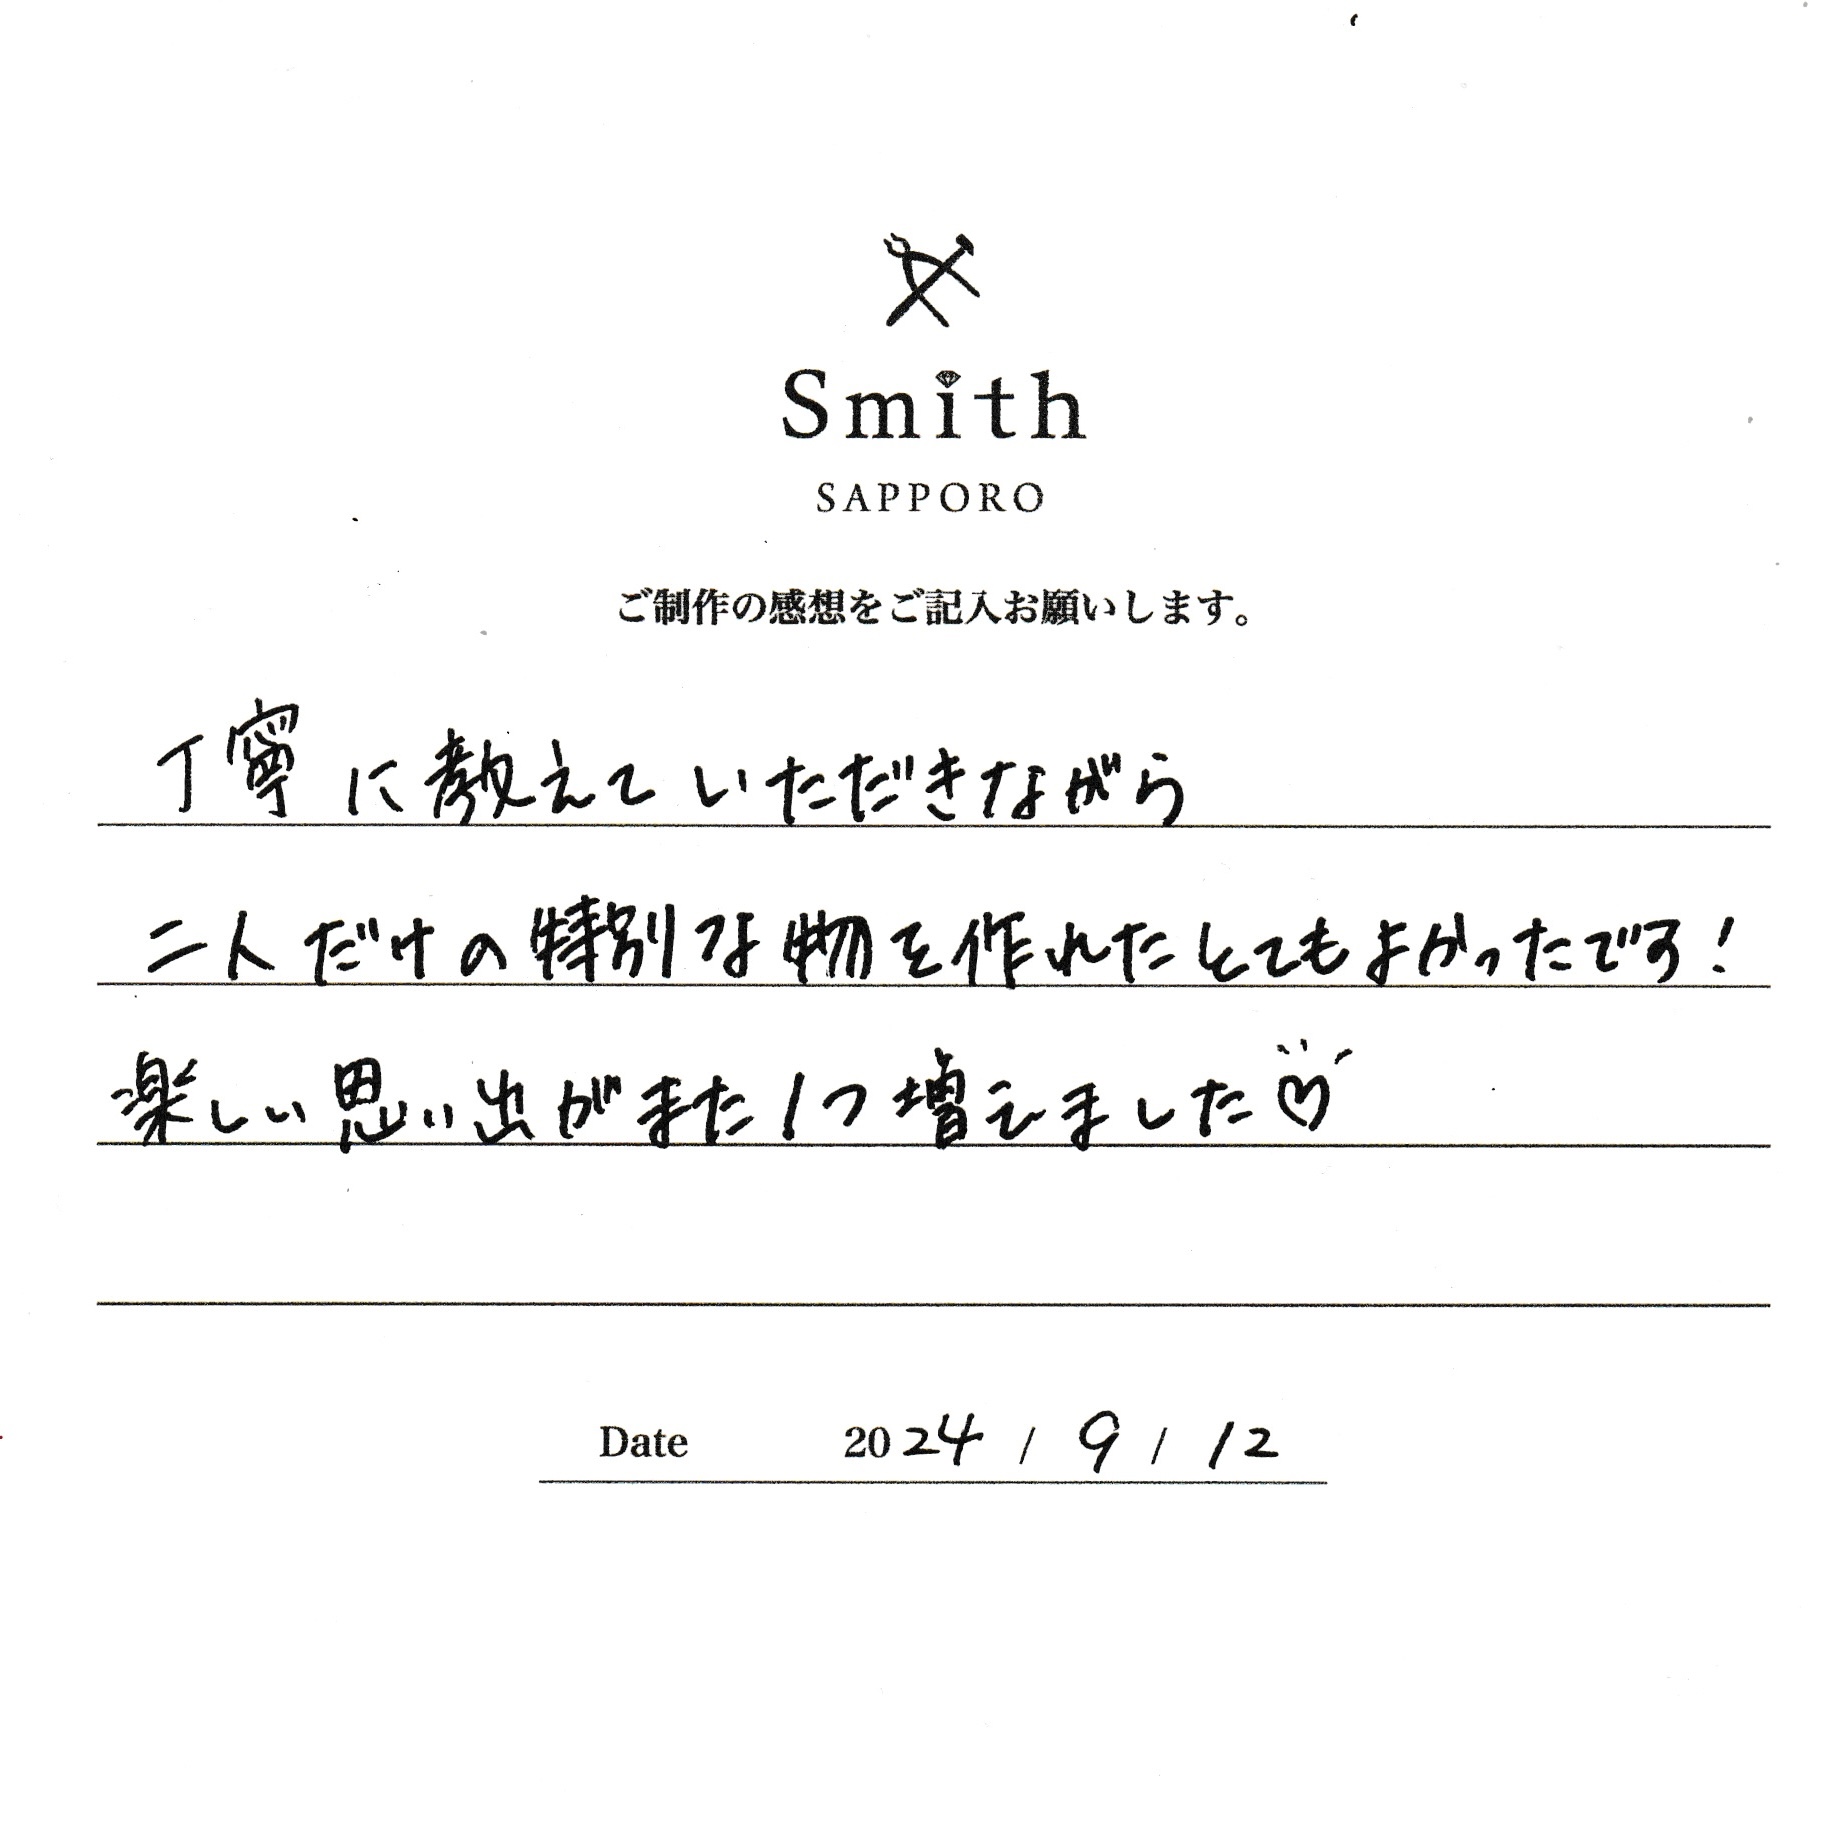 Smith
SAPPORO
ご制作の感想をご記入お願いします。
丁寧に教えていただきながら
二人だけの特別な物を作れたとてもよかったです!
楽しい思い出がまた1つ増えました♡
Date 2024 / 9 / 12